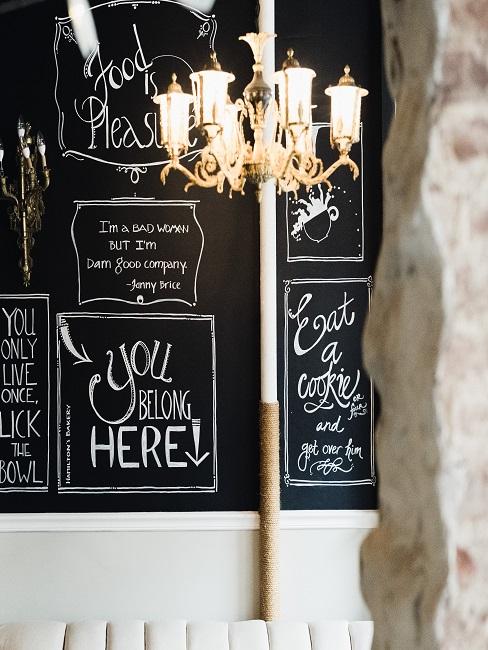 Food
is
Pleasure
I'm a BAD WOMAN
BUT I'm
Dam good company.
-Fanny Brice
YOU
ONLY
LIVE
ONCE,
LICK
THE
BOWL
YOU
BELONG
HERE
HAMILTON'S BAKERY
Eat
a
cookie
or four
and
get over him